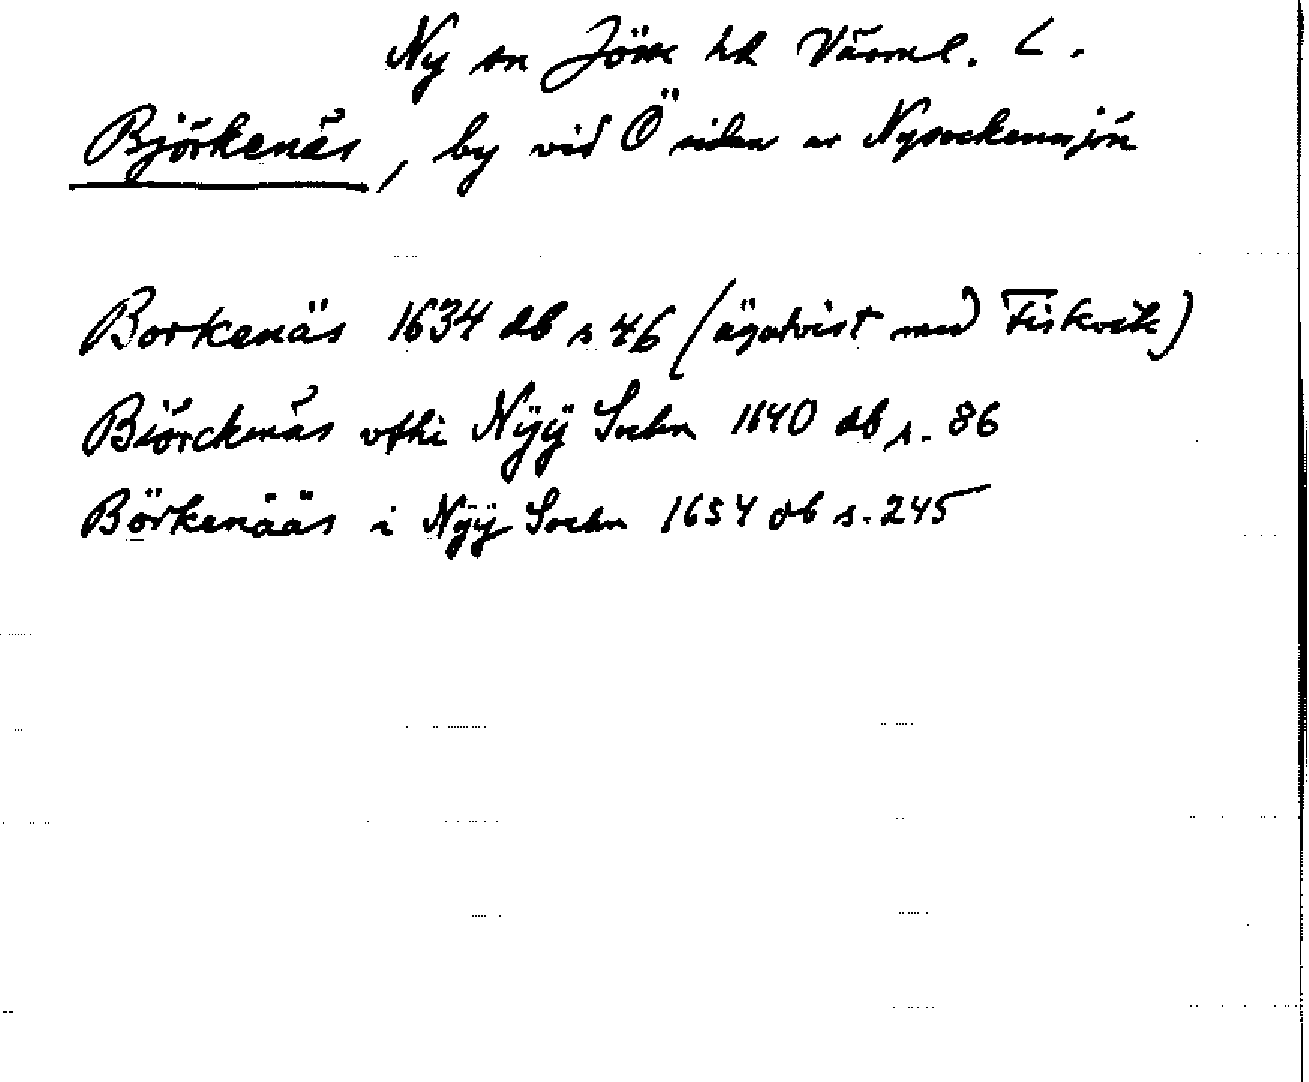 Ny sn Jösse hd Värml. L.
Björkenäs, by vid Ö sidan av Nysockensjön
Borkenäs 1634 db s 46 (ägotvist med Fiskvik)
Biörckenäs vthi Nÿÿ Sochn 1640 db s. 86
Börkenääs i Nÿÿ Sochn 1654 db s. 245